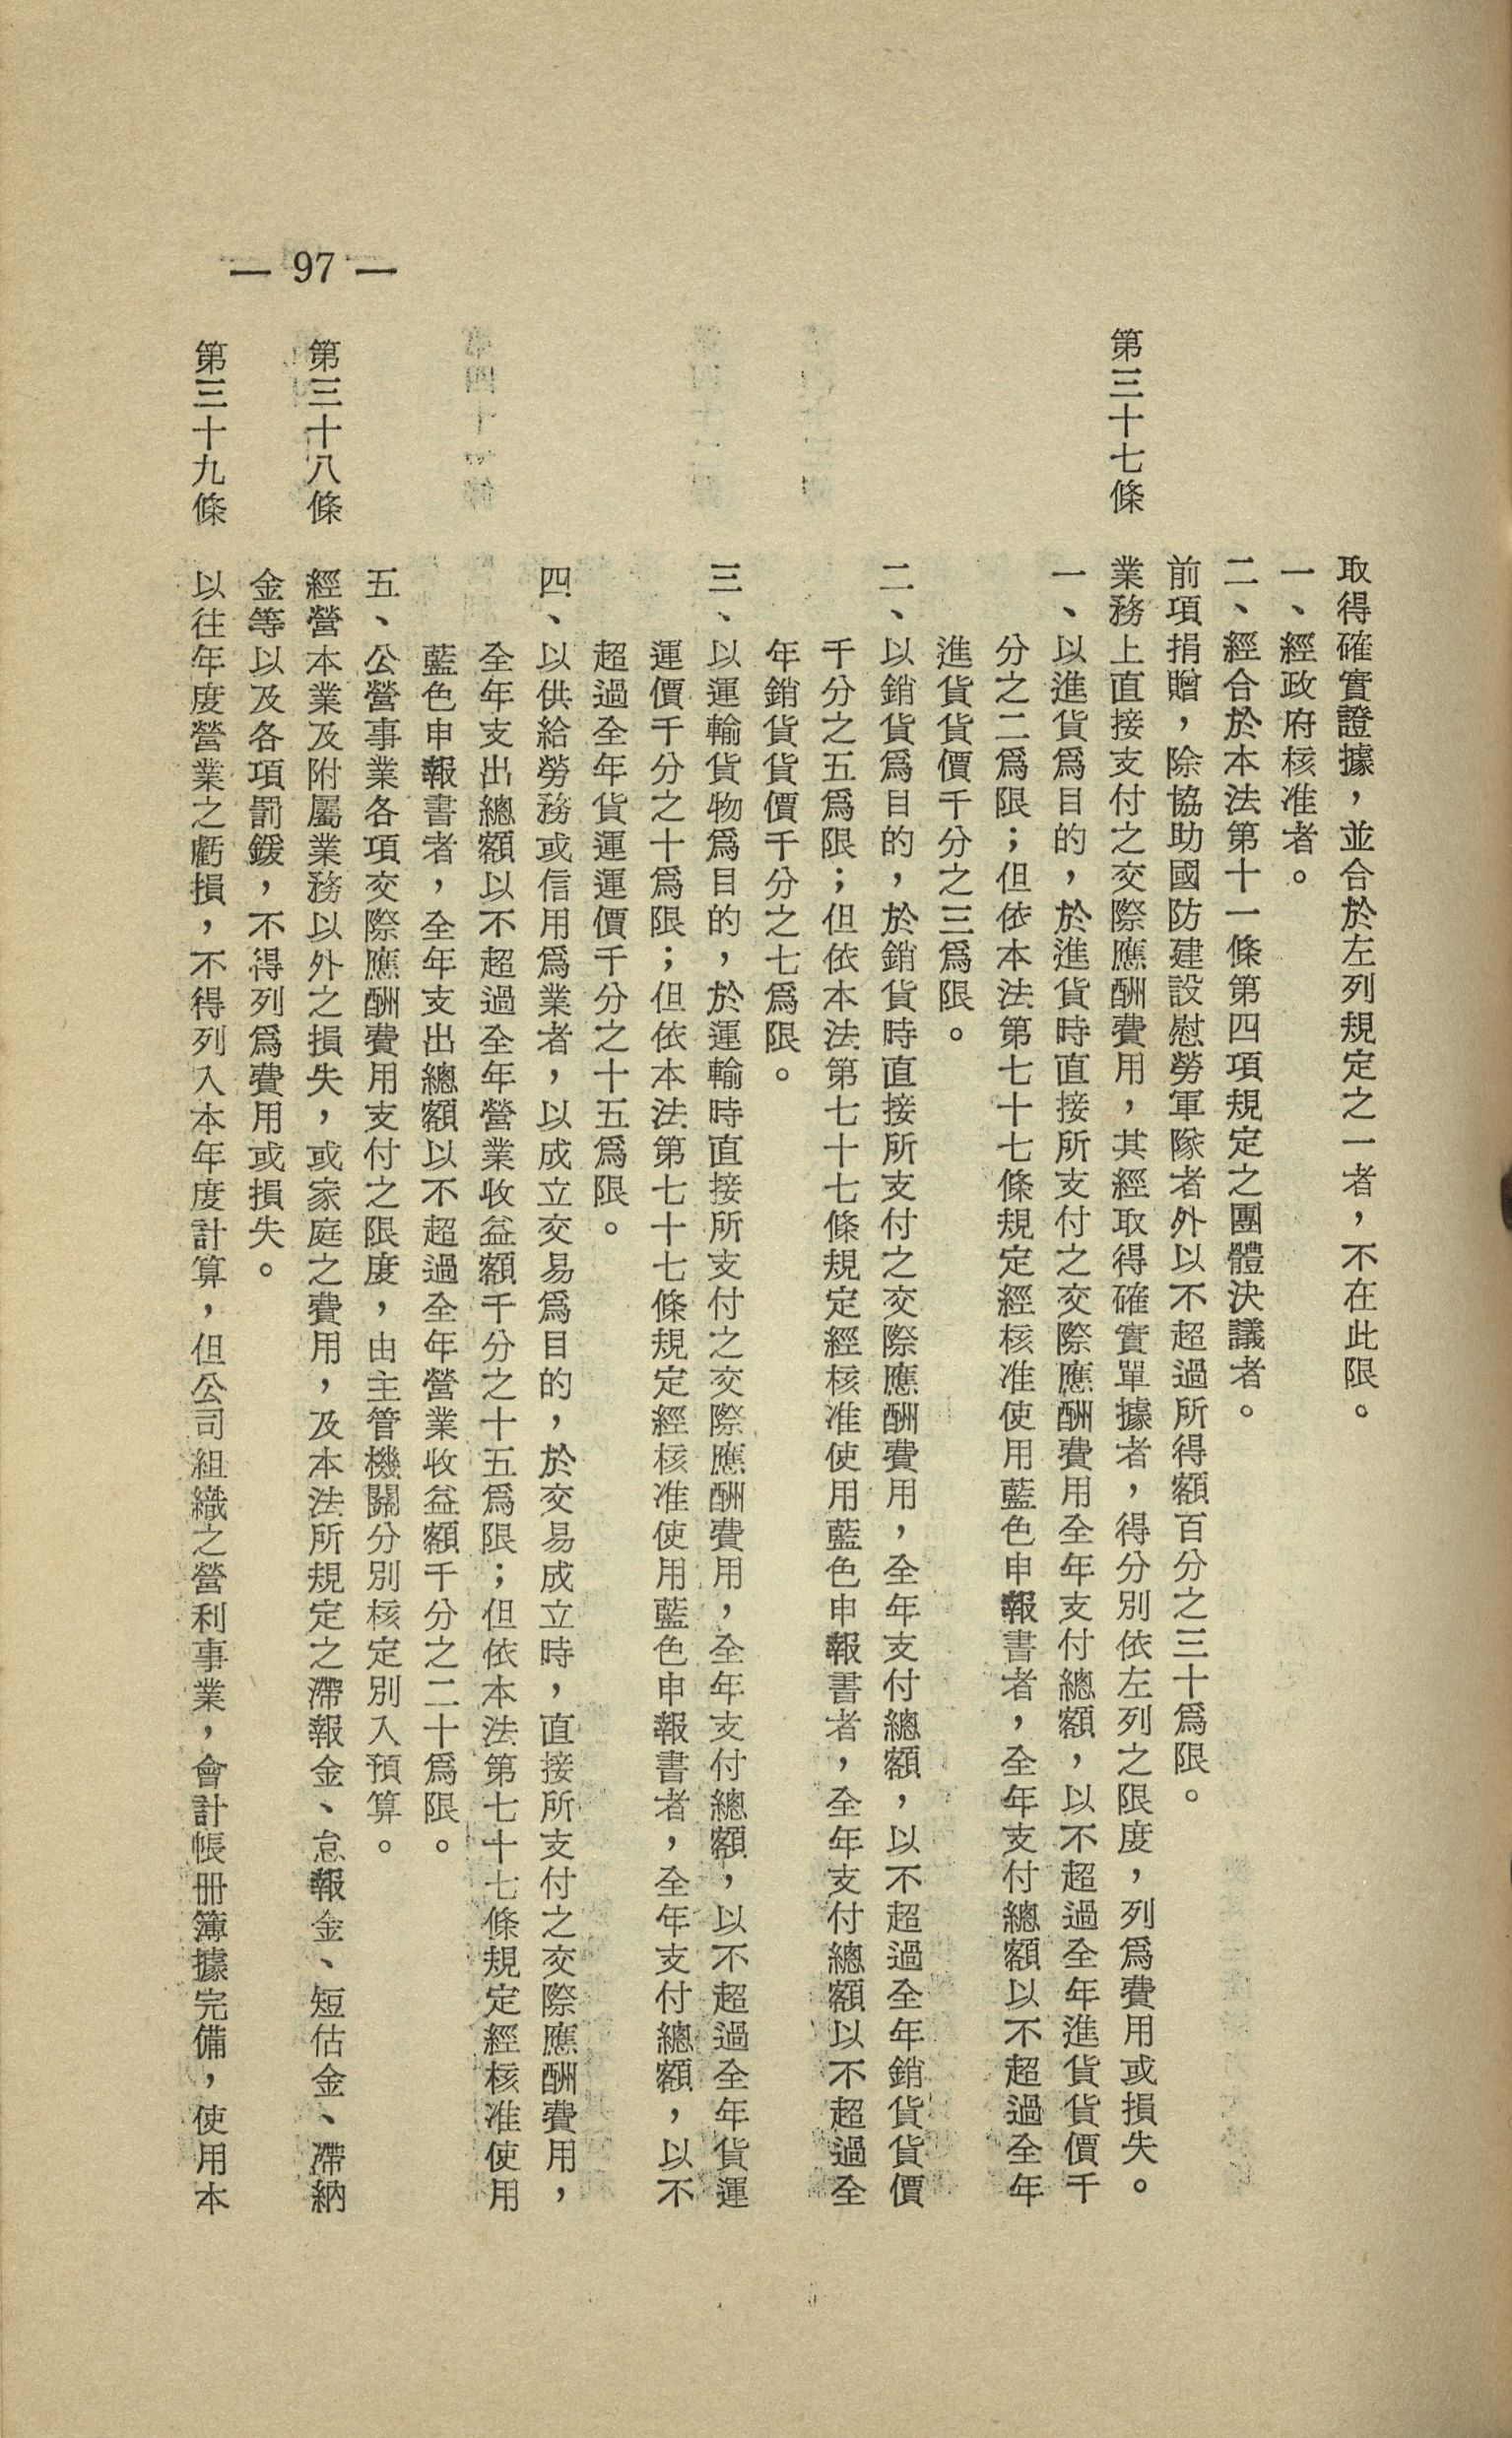 — 97 —
取得確實證據，並合於左列規定之一者，不在此限。
一、經政府核准者。
二、經合於本法第十一條第四項規定之團體決議者。
前項捐贈，除協助國防建設慰勞軍隊者外以不超過所得額百分之三十爲限。
第三十七條　業務上直接支付之交際應酬費用，其經取得確實單據者，得分別依左列之限度，列爲費用或損失。
一、以進貨爲目的，於進貨時直接所支付之交際應酬費用全年支付總額，以不超過全年進貨貨價千
分之二爲限；但依本法第七十七條規定經核准使用藍色申報書者，全年支付總額以不超過全年
進貨貨價千分之三爲限。
二、以銷貨爲目的，於銷貨時直接所支付之交際應酬費用，全年支付總額，以不超過全年銷貨貨價
千分之五爲限；但依本法第七十七條規定經核准使用藍色申報書者，全年支付總額以不超過全
年銷貨貨價千分之七爲限。
三、以運輸貨物爲目的，於運輸時直接所支付之交際應酬費用，全年支付總額，以不超過全年貨運
運價千分之十爲限；但依本法第七十七條規定經核准使用藍色申報書者，全年支付總額，以不
超過全年貨運運價千分之十五爲限。
四、以供給勞務或信用爲業者，以成立交易爲目的，於交易成立時，直接所支付之交際應酬費用，
全年支出總額以不超過全年營業收益額千分之十五爲限；但依本法第七十七條規定經核准使用
藍色申報書者，全年支出總額以不超過全年營業收益額千分之二十爲限。
五、公營事業各項交際應酬費用支付之限度，由主管機關分別核定別入預算。
第三十八條　經營本業及附屬業務以外之損失，或家庭之費用，及本法所規定之滯報金、怠報金、短估金、滯納
金等以及各項罰鍰，不得列爲費用或損失。
第三十九條　以往年度營業之虧損，不得列入本年度計算，但公司組織之營利事業，會計帳冊簿據完備，使用本